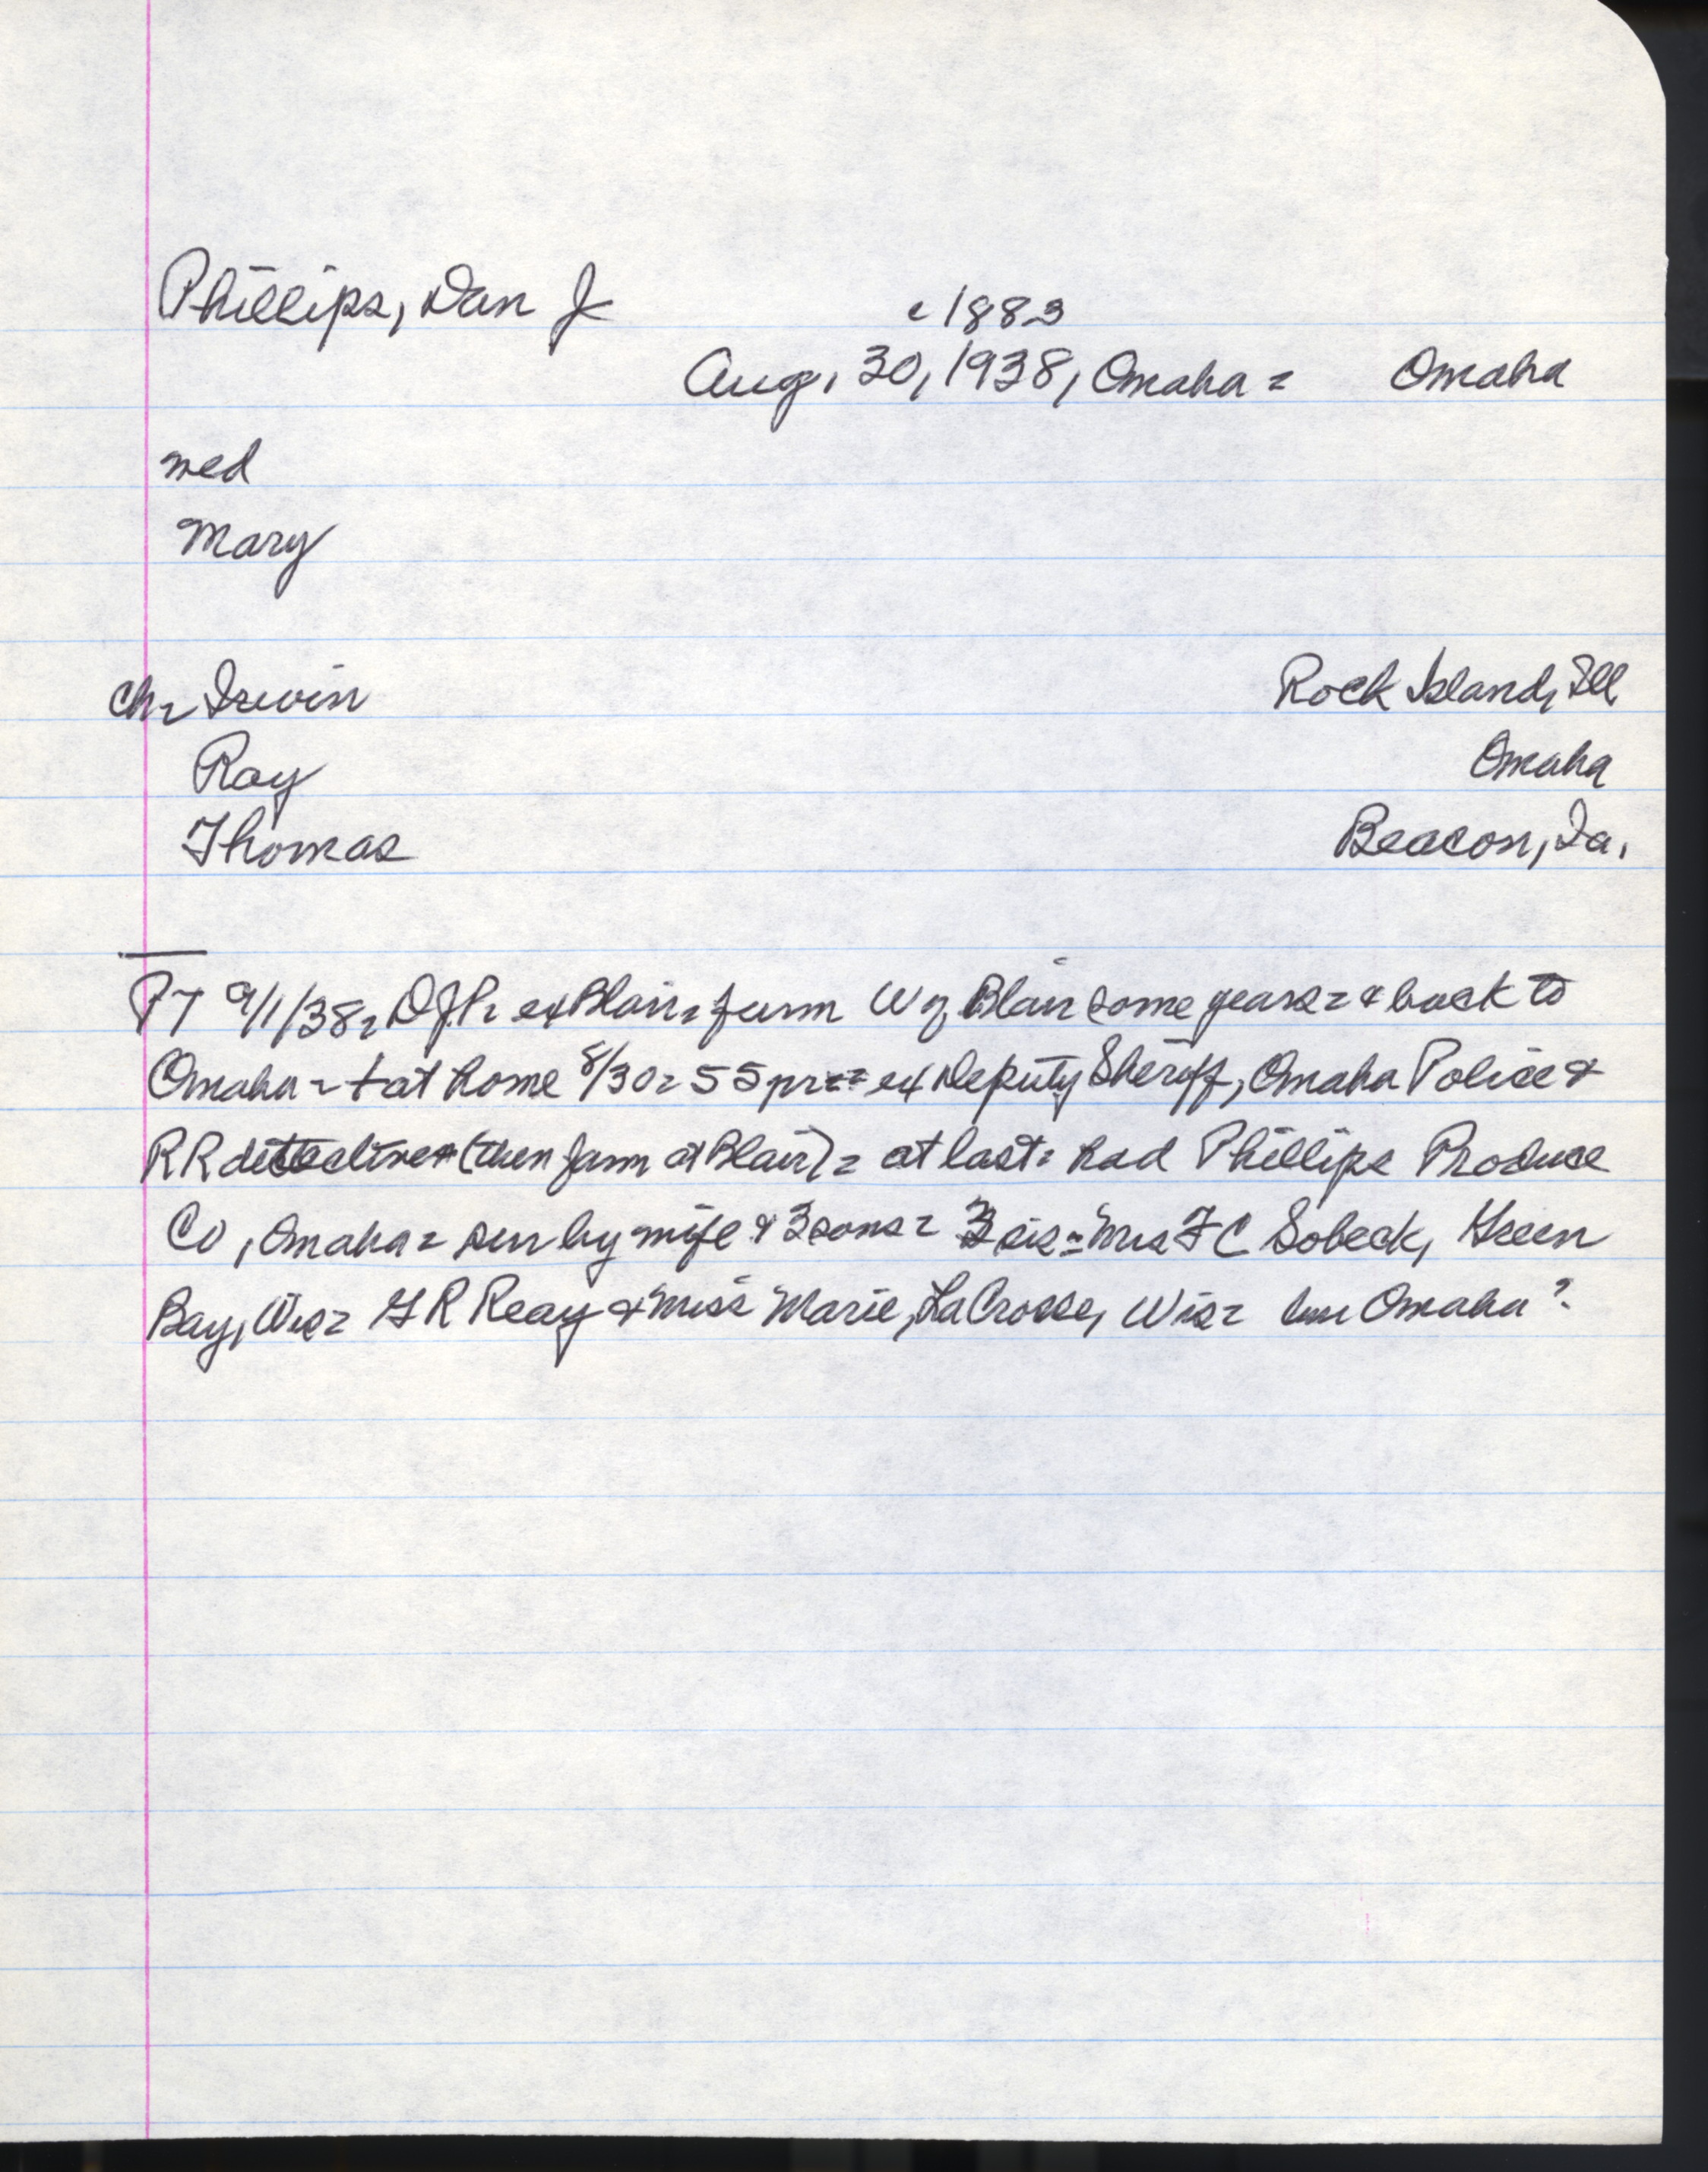 Phillips, Dan J
c 1883
Aug. 30, 1938, Omaha = Omaha
med
Mary
Ch = Irwin Rock Island, Ill
Ray Omaha
Thomas Beacon, Ia.
PT 9/1/38 = DJP = ex Blair = farm W of Blair some years = & back to
Omaha = † at home 8/30 = 55 yrs = ex Deputy Sheriff, Omaha Police &
RR detective (then farm at Blair) = at last = had Phillips Produce
Co, Omaha = sur by wife & 3 sons = 3 sis = Mrs F C Sobeck, Green
Bay, Wis = G R Reay & Miss Marie, LaCrosse, Wis = bur Omaha ?